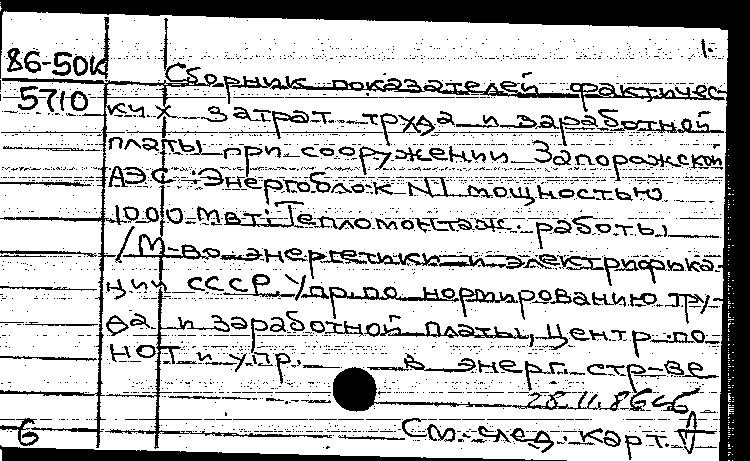 1.
86-50К Сборник показателей фактичес-
5710 ких затрат труда и заработной
платы при сооружении Запорожской
АЭС: Энергоблок N1 мощностью
1000 МВт: Тепломонтаж. работы
/М-во энергетики и электрифика-
ции СССР. Упр. по нормированию тру-
да и заработной платы, Центр по
НОТ и упр. в энерг. стр-ве
28.11.86
6 См. след. карт.